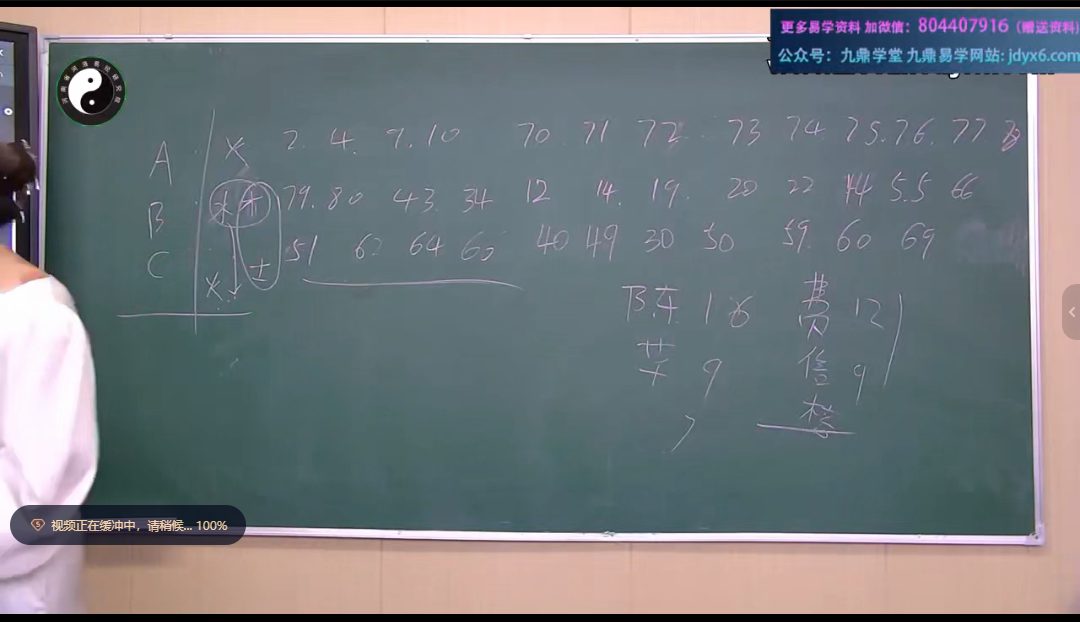 更多易学资料 加微信: 804407916 (赠送资料)
公众号: 九鼎学堂 九鼎易学网站: jdyx6.com
A 火 2. 4. 7. 10 70. 71 72. 73 74 75. 76. 77
B 水 木 79. 80 43. 34 12 14. 19. 20 22 44 5.5 66
C 火 土 51 62 64 60 40 49 30 50 59. 60 69
陈 16 费 12
芊 9 信 9
楼
视频正在缓冲中，请稍候... 100%